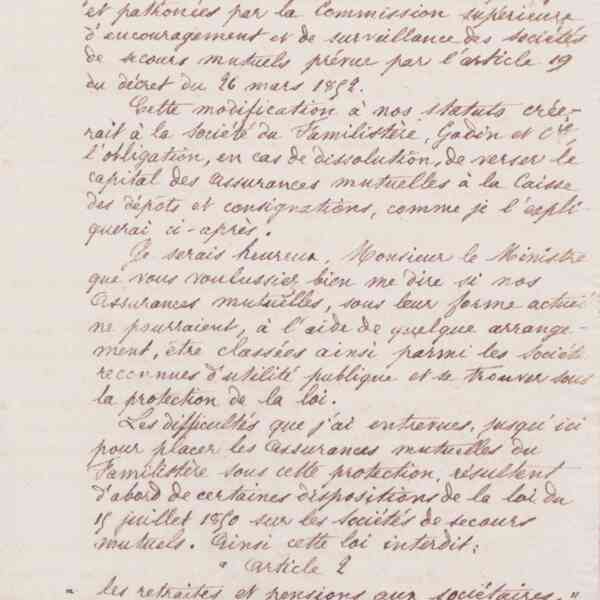 et patronées par la Commission supérieure
d'encouragement et de surveillance des sociétés
de secours mutuels prévue par l'article 19
du décret du 26 mars 1852.
Cette modification à nos statuts crée-
rait à la société du Familistère, Godin et Cie,
l'obligation, en cas de dissolution, de verser le
capital des assurances mutuelles à la Caisse
des dépôts et consignations, comme je l'expli
querai ci-après.
Je serais heureux, Monsieur le Ministre
que vous voulussier bien me dire si nos
assurances mutuelles, sous leur forme actuel
ne pourraient, à l'aide de quelque arrange-
ment, être classées ainsi parmi les Société
reconnues d'utilité publique et se trouver sous
la protection de la loi.
Les difficultés que j'ai entrevues, jusqu'ici
pour placer les assurances mutuelles du
Familistère sous cette protection, résultent
d'abord de certaines dispositions de la loi du
15 juillet 1850 sur les sociétés de secours
mutuels. Ainsi cette loi interdit:
" Article 2
" les retraites et pensions aux sociétaires, "